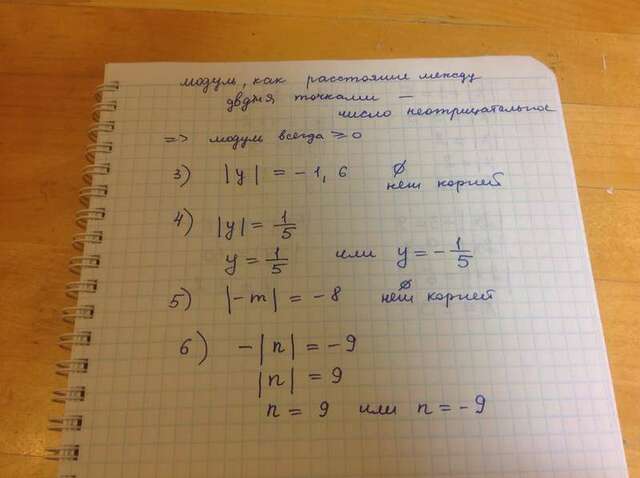 модуль, как расстояние между
двумя точками —
число неотрицательное
=> модуль всегда ≥ 0
3) |y| = -1,6 ∅
нет корней
4) |y| = 1/5
y = 1/5 или y = -1/5
5) |-m| = -8 ∅ нет корней
6) -|n| = -9
|n| = 9
n = 9 или n = -9